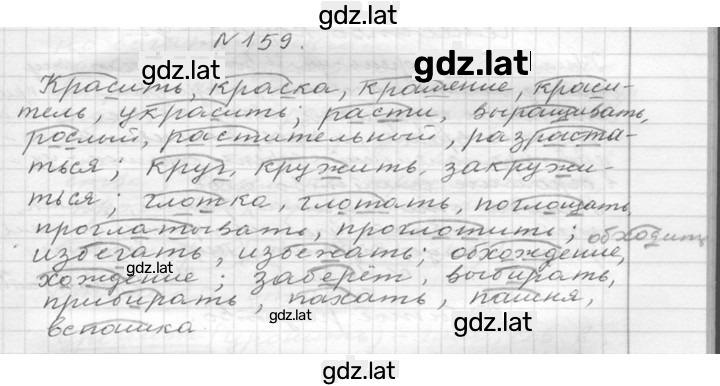 gdz.lat
№159.
gdz.lat
gdz.lat
Красить, краска, крашение, краси-
тель, украсить; расти, выращивать,
рослый, растительный, разраста-
ться; круг, кружить, закружи-
ться; глотка, глотать, поглощать,
проглатывать, проглотить; обходить
избегать, избежать; обхождение,
gdz.lat
хождение; заберёт, выбирать,
прибирать, пахать, пашня,
gdz.lat
gdz.lat
вспашка.
gdz.lat